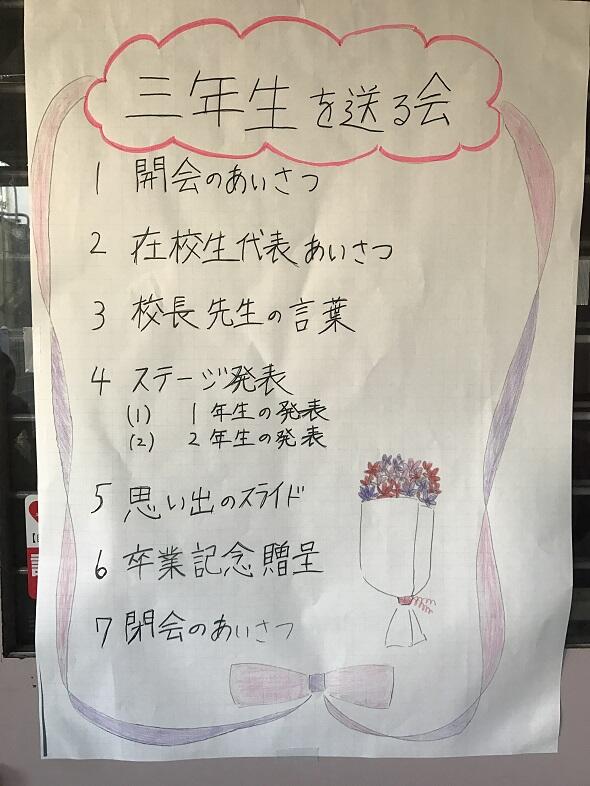 三年生を送る会
1 開会のあいさつ
2 在校生代表あいさつ
3 校長先生の言葉
4 ステージ発表
(1) 1年生の発表
(2) 2年生の発表
5 思い出のスライド
6 卒業記念贈呈
7 閉会のあいさつ